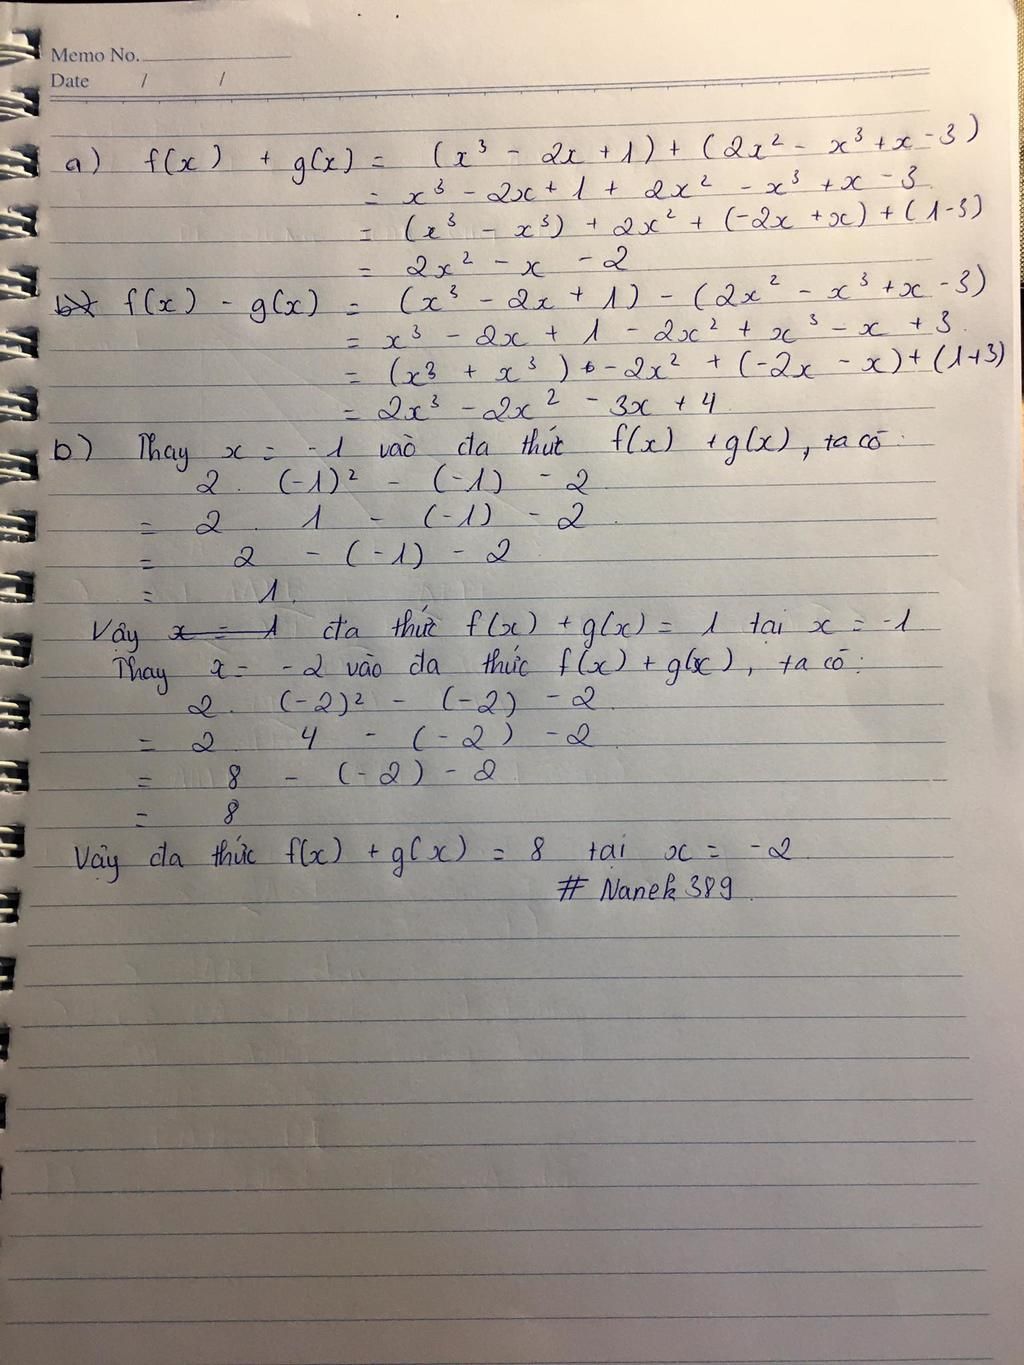 Memo No.
Date / /
a) f(x) + g(x) = (x³ - 2x + 1) + (2x² - x³ + x - 3)
= x³ - 2x + 1 + 2x² - x³ + x - 3
= (x³ - x³) + 2x² + (-2x + x) + (1-3)
= 2x² - x - 2
b) f(x) - g(x) = (x³ - 2x + 1) - (2x² - x³ + x - 3)
= x³ - 2x + 1 - 2x² + x³ - x + 3
= (x³ + x³) - 2x² + (-2x - x) + (1+3)
= 2x³ - 2x² - 3x + 4
b) Thay x = -1 vào đa thức f(x) + g(x), ta có:
2 . (-1)² - (-1) - 2
= 2 . 1 - (-1) - 2
= 2 - (-1) - 2
= 1.
Vậy x = 1 đa thức f(x) + g(x) = 1 tại x = -1
Thay x = -2 vào đa thức f(x) + g(x), ta có:
2 . (-2)² - (-2) - 2
= 2 . 4 - (-2) - 2
= 8 - (-2) - 2
= 8
Vậy đa thức f(x) + g(x) = 8 tại x = -2
# Nanek389